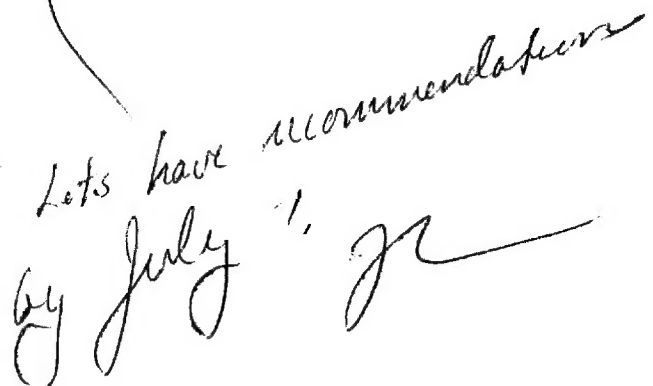 Lets have recommendations
by July 1,